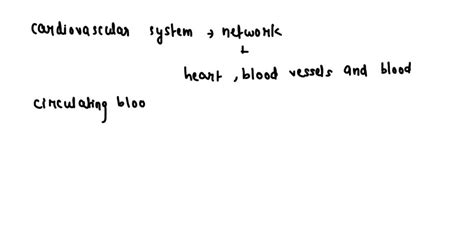 cardiovascular system → network
↓
heart, blood vessels and blood
circulating bloo